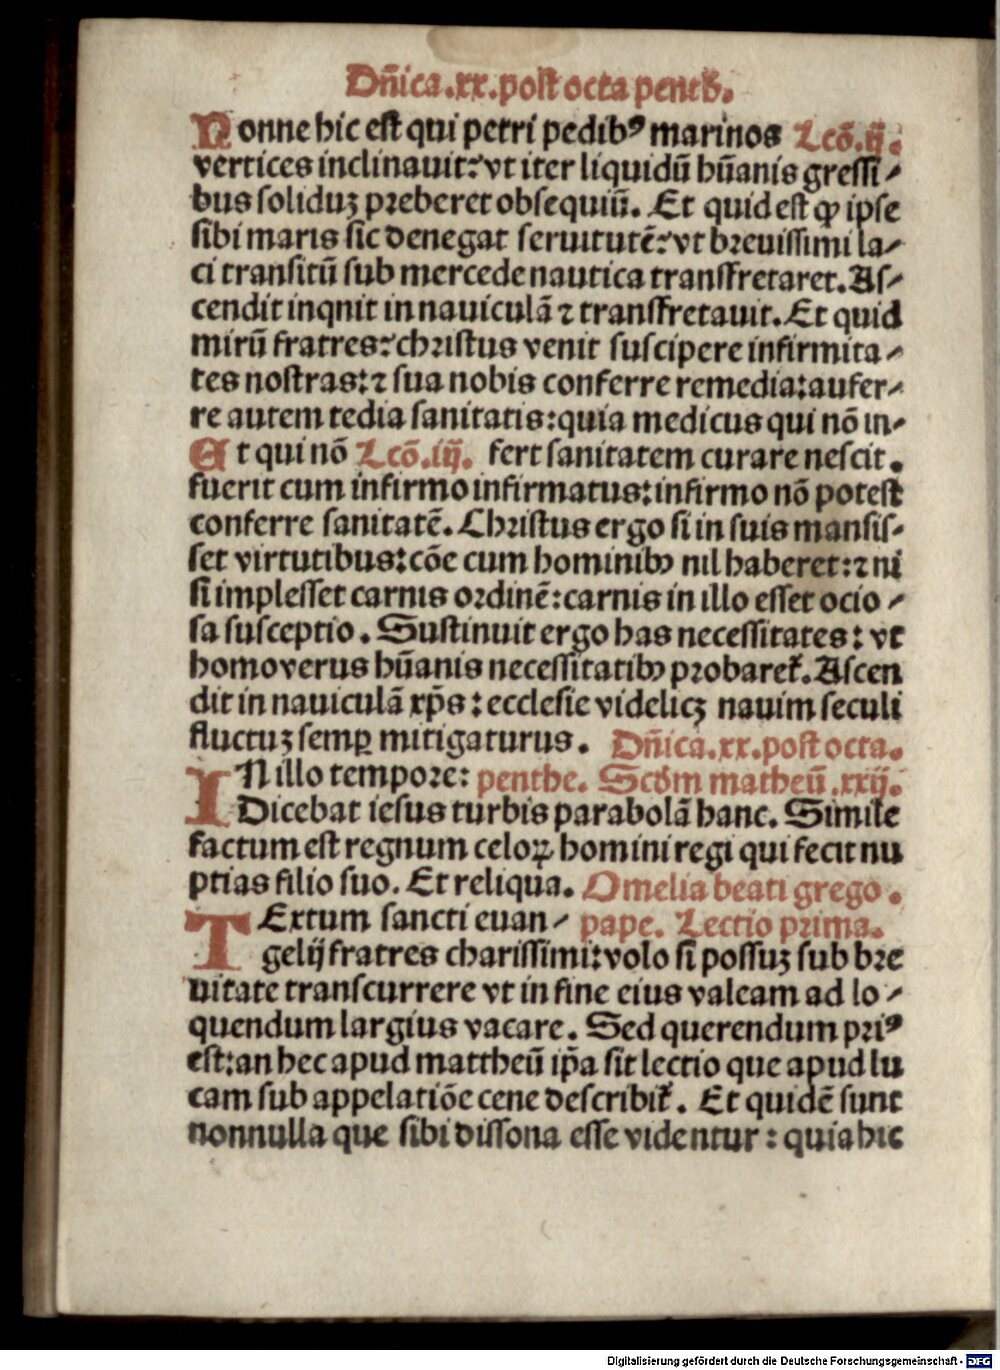 Dñica.xx.post octa pentħ.
Nonne hic est qui petri pedibꝰ marinos Lcō.ij.
vertices inclinauit:vt iter liquidū hūanis gressi⸗
bus soliduꝫ preberet obsequiū. Et quid est ꝙ ipse
sibi maris sic denegat seruitutē:vt breuissimi la⸗
ci transitū sub mercede nautica transfretaret. As⸗
cendit inqnit in nauiculā ⁊ transfretauit. Et quid
mirū fratres:christus venit suscipere infirmita⸗
tes nostras:⁊ sua nobis conferre remedia:aufer⸗
re autem tedia sanitatis:quia medicus qui nō in⸗
Et qui nō Lcō.iij. fert sanitatem curare nescit.
fuerit cum infirmo infirmatus:infirmo nō potest
conferre sanitatē. Christus ergo si in suis mansis⸗
set virtutibus:cōe cum hominibꝰ nil haberet:⁊ ni
si implesset carnis ordinē:carnis in illo esset ocio⸗
sa susceptio. Sustinuit ergo has necessitates: vt
homo verus hūanis necessitatibꝰ probaretᷣ. Ascen
dit in nauiculā xp̄s : ecclesie videlicꝫ nauim seculi
fluctuꝫ semꝑ mitigaturus. Dñica.xx.post octa.
IN illo tempore: penthe. Scđm matheū.xxij.
Dicebat iesus turbis parabolā hanc. Simile
factum est regnum celoꝝ homini regi qui fecit nu
ptias filio suo. Et reliqua. Omelia beati grego.
TExtum sancti euan⸗ pape. Lectio prima.
gelij fratres charissimi:volo si possuꝫ sub bre
uitate transcurrere vt in fine eius valeam ad lo⸗
quendum largius vacare. Sed querendum priꝰ
est:an hec apud mattheū ip̄a sit lectio que apud lu
cam sub appelatiōe cene describitᷣ. Et quidē sunt
nonnulla que sibi dissona esse videntur : quia hic
Digitalisierung gefördert durch die Deutsche Forschungsgemeinschaft - DFG